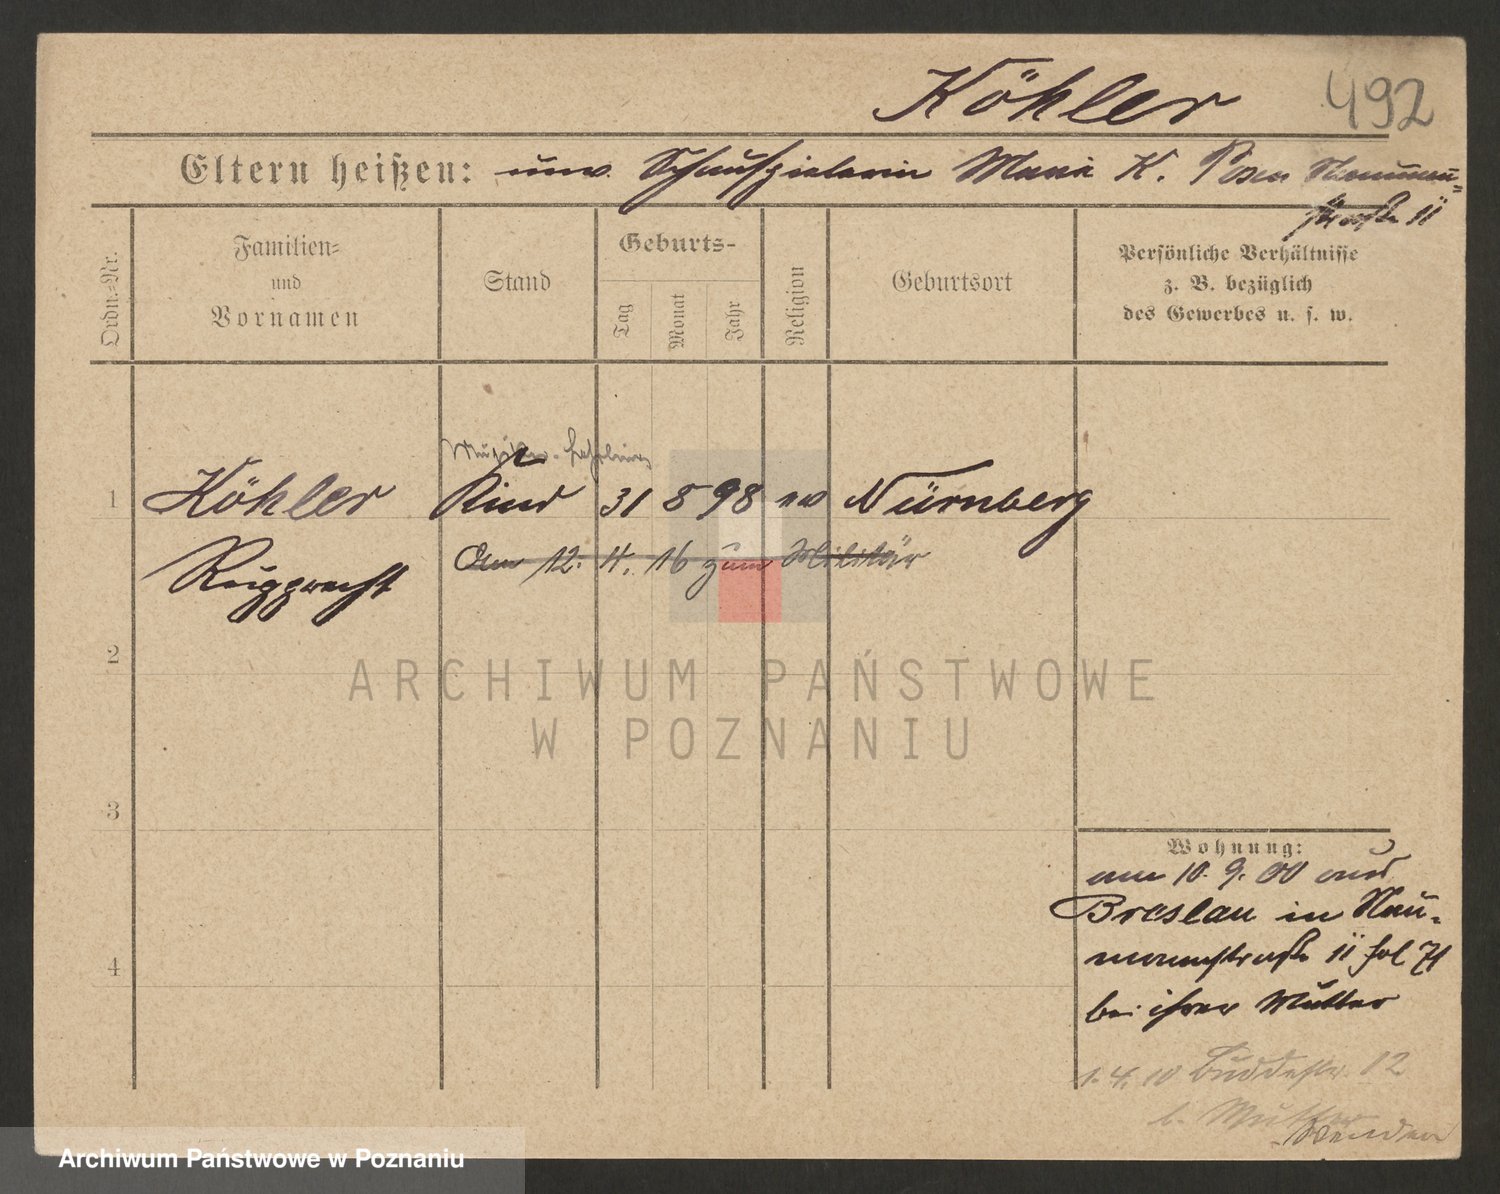 Köhler 492
Eltern heißen: unv. Schauspielerin Maria K. Posen Naumann=
straße 11
Ordn.=Nr.
Familien=
und
Vornamen
Stand
Geburts-
Tag
Monat
Jahr
Religion
Geburtsort
Persönliche Verhältnisse
z. B. bezüglich
des Gewerbes u. s. w.
Musiker-Lehrling
1 Köhler Kind 31 8 98 ev Nürnberg
Rupprecht Am 12. 4. 16 zum Militär
2
ARCHIWUM PAŃSTWOWE
W POZNANIU
3
4
Wohnung:
am 10. 9. 00 aus
Breslau in Nau-
mannstraße 11 fol 71
bei ihrer Mutter
1. 4. 10 Buddestr. 12
b. Mutter
Archiwum Państwowe w Poznaniu